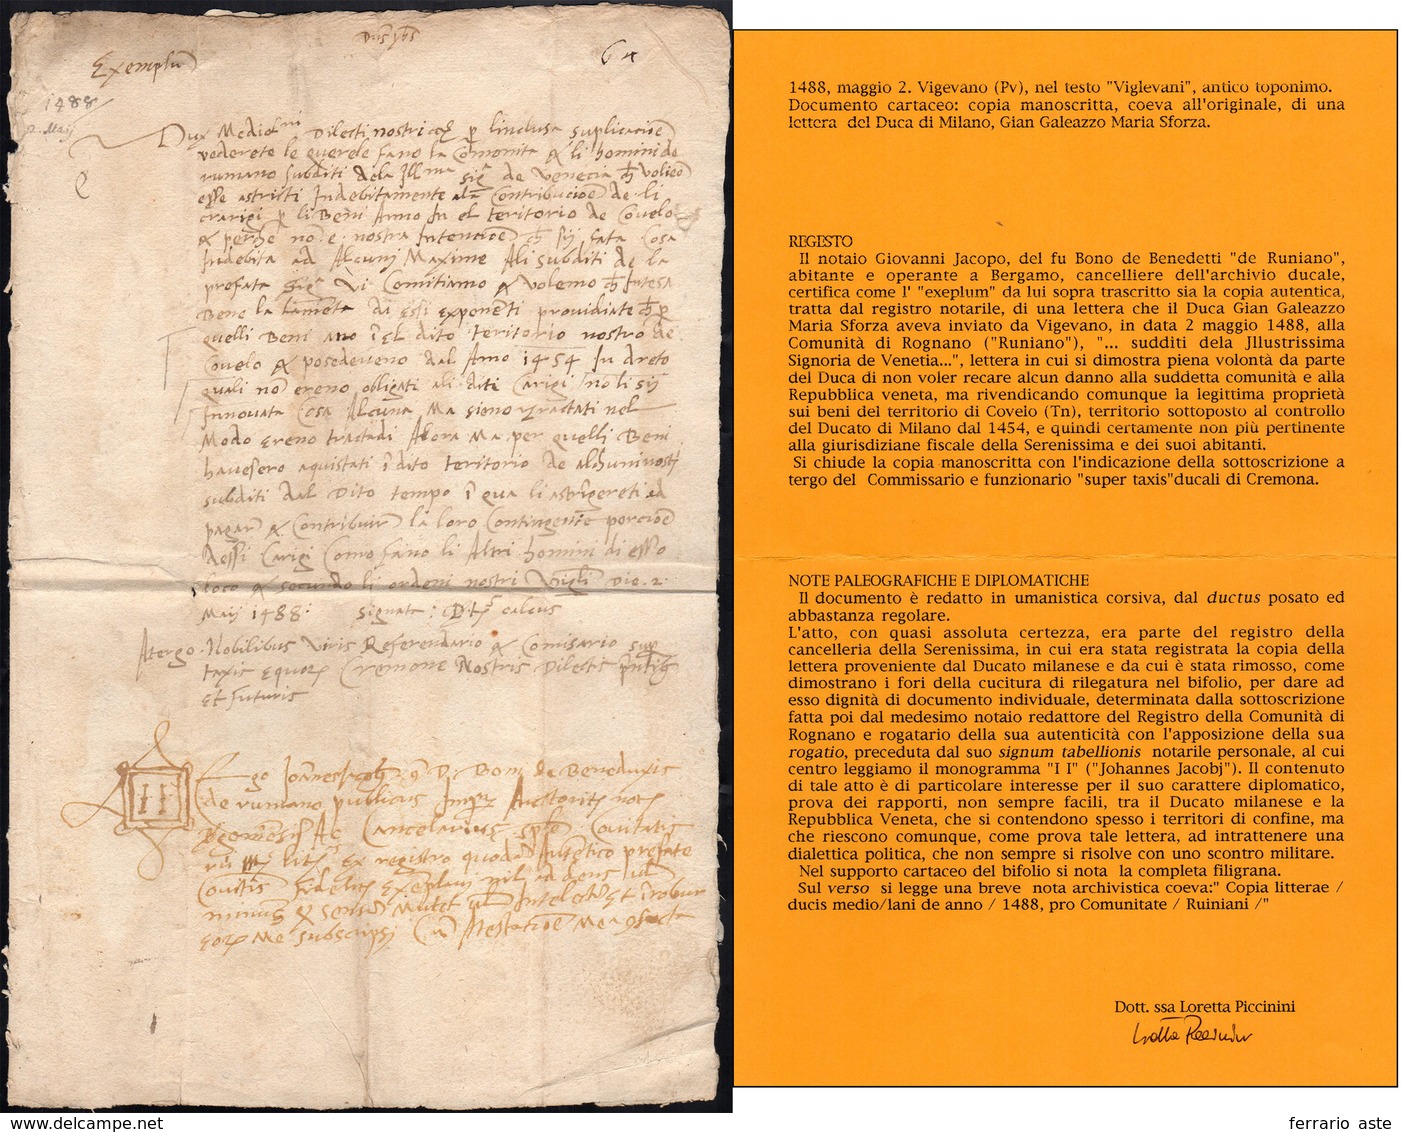 Exemplum
64
1488
2. Maij
Dux Mediolani Dilecti nostri per linclusa suplicacione
vederete le querele fano la Comonita & li homini de
rumano subditi dela Illma Sigra de Venecia voleno
esse astricti Indebitamente ala Contribucione de li
carigi per li Beni Anno In el teritorio de Covelo
& perche non e nostra Intencione sij fata Cosa
Indebita ad Alcunij Maxime Ali subditi de la
prefata Sigra Vi Comitiamo & Volemo Intesa
Bene la lamenta di essi exponenti providiate
quelli Beni ano i el dito teritorio nostro de
Covelo & posedeveno dal Anno 1454 In dreto
quali non ereno obligati ali diti Carigi non li sij
Innovata Cosa Alcuna Ma sieno tractati nel
Modo ereno tractadi Alora Ma per quelli Beni
havesero aquistati i dito teritorio de alchuni nostri
subditi dal Dito tempo i qua li astrigereti ad
pagar & Contribuir la loro Contingente porcione
desi Carigi Como fano li Altri homini di esso
loco & secundo li ordeni nostri Vigli Die 2
Maij 1488: Signata: calcus
Atergo. Nobilibus Viris Referendario & Comisario super
taxis equorum Cremone Nostris Dilectis
et futuris
II
Ego Joannes Jacobus D. Boni de Benedictis
de rumano publicus Auctoritate
Ac Cancelarius Comitatis
ex registro Autentico prefate
Comitatis fidelit Exemplavi nil adens vel
minuens sensum Mutet vel Intelectus Et i robur
Me subscripsi Atestatione
1488, maggio 2. Vigevano (Pv), nel testo "Viglevani", antico toponimo.
Documento cartaceo: copia manoscritta, coeva all'originale, di una
lettera del Duca di Milano, Gian Galeazzo Maria Sforza.
REGESTO
Il notaio Giovanni Jacopo, del fu Bono de Benedetti "de Runiano",
abitante e operante a Bergamo, cancelliere dell'archivio ducale,
certifica come l' "exeplum" da lui sopra trascritto sia la copia autentica,
tratta dal registro notarile, di una lettera che il Duca Gian Galeazzo
Maria Sforza aveva inviato da Vigevano, in data 2 maggio 1488, alla
Comunità di Rognano ("Runiano"), "... sudditi dela Jllustrissima
Signoria de Venetia...", lettera in cui si dimostra piena volontà da parte
del Duca di non voler recare alcun danno alla suddetta comunità e alla
Repubblica veneta, ma rivendicando comunque la legittima proprietà
sui beni del territorio di Covelo (Tn), territorio sottoposto al controllo
del Ducato di Milano dal 1454, e quindi certamente non più pertinente
alla giurisdiziane fiscale della Serenissima e dei suoi abitanti.
Si chiude la copia manoscritta con l'indicazione della sottoscrizione a
tergo del Commissario e funzionario "super taxis"ducali di Cremona.
NOTE PALEOGRAFICHE E DIPLOMATICHE
Il documento è redatto in umanistica corsiva, dal ductus posato ed
abbastanza regolare.
L'atto, con quasi assoluta certezza, era parte del registro della
cancelleria della Serenissima, in cui era stata registrata la copia della
lettera proveniente dal Ducato milanese e da cui è stata rimosso, come
dimostrano i fori della cucitura di rilegatura nel bifolio, per dare ad
esso dignità di documento individuale, determinata dalla sottoscrizione
fatta poi dal medesimo notaio redattore del Registro della Comunità di
Rognano e rogatario della sua autenticità con l'apposizione della sua
rogatio, preceduta dal suo signum tabellionis notarile personale, al cui
centro leggiamo il monogramma "I I" ("Johannes Jacobj"). Il contenuto
di tale atto è di particolare interesse per il suo carattere diplomatico,
prova dei rapporti, non sempre facili, tra il Ducato milanese e la
Repubblica Veneta, che si contendono spesso i territori di confine, ma
che riescono comunque, come prova tale lettera, ad intrattenere una
dialettica politica, che non sempre si risolve con uno scontro militare.
Nel supporto cartaceo del bifolio si nota la completa filigrana.
Sul verso si legge una breve nota archivistica coeva:" Copia litterae /
ducis medio/lani de anno / 1488, pro Comunitate / Ruiniani /"
Dott. ssa Loretta Piccinini
ferrario aste